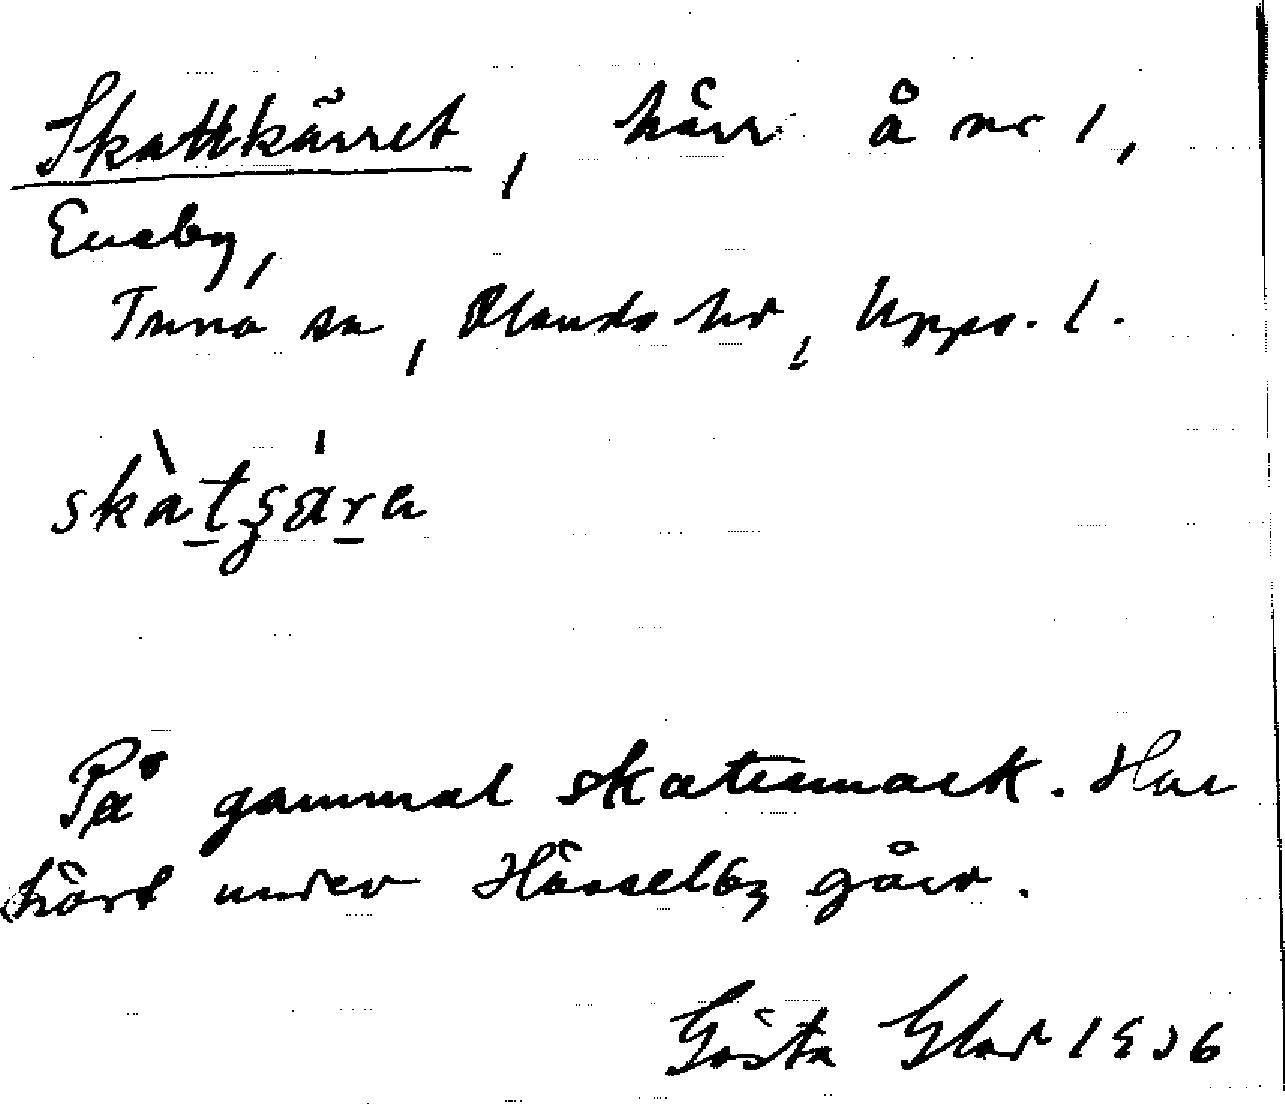 Skattkärret, kärr å nr 1,
Eneby,
Tuna sn, Olands hd, Upps. l.
skàtʒára
På gammal skattemark. Har
hört under Hässelby gård.
Gösta Glad 1936